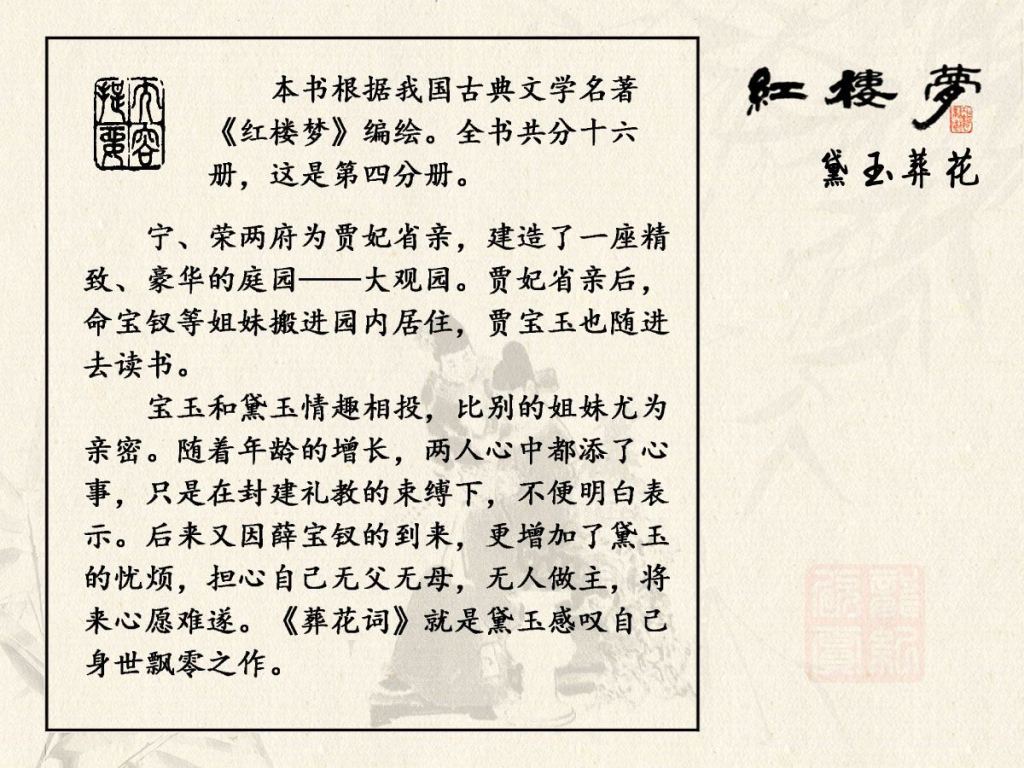 紅樓夢
黛玉葬花
内容
提要
本书根据我国古典文学名著
《红楼梦》编绘。全书共分十六
册，这是第四分册。
宁、荣两府为贾妃省亲，建造了一座精
致、豪华的庭园——大观园。贾妃省亲后，
命宝钗等姐妹搬进园内居住，贾宝玉也随进
去读书。
宝玉和黛玉情趣相投，比别的姐妹尤为
亲密。随着年龄的增长，两人心中都添了心
事，只是在封建礼教的束缚下，不便明白表
示。后来又因薛宝钗的到来，更增加了黛玉
的忧烦，担心自己无父无母，无人做主，将
来心愿难遂。《葬花词》就是黛玉感叹自己
身世飘零之作。